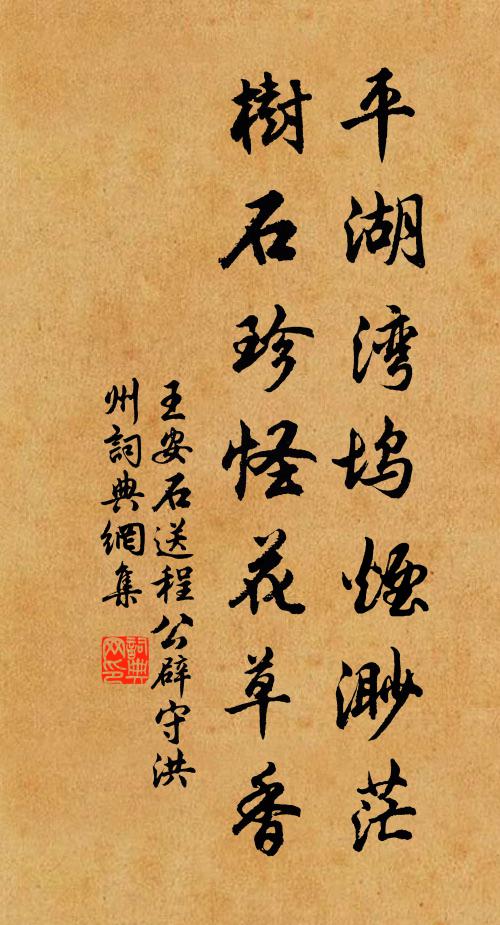 平湖湾坞煙渺茫
樹石珍怪花草香
王安石送程公辟守洪
州詞典網集
詞典網印